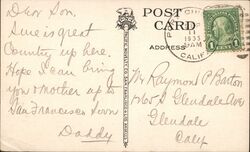 Dear Son.
Sure is great
Country up here.
Hope I can bring
you & mother up to
San Francisco soon
Daddy
POST
CARD
ADDRESS
11
1935
AM
CALIF
1
Mr Raymond P Barton
Glendale Ave
Glendale
Calif